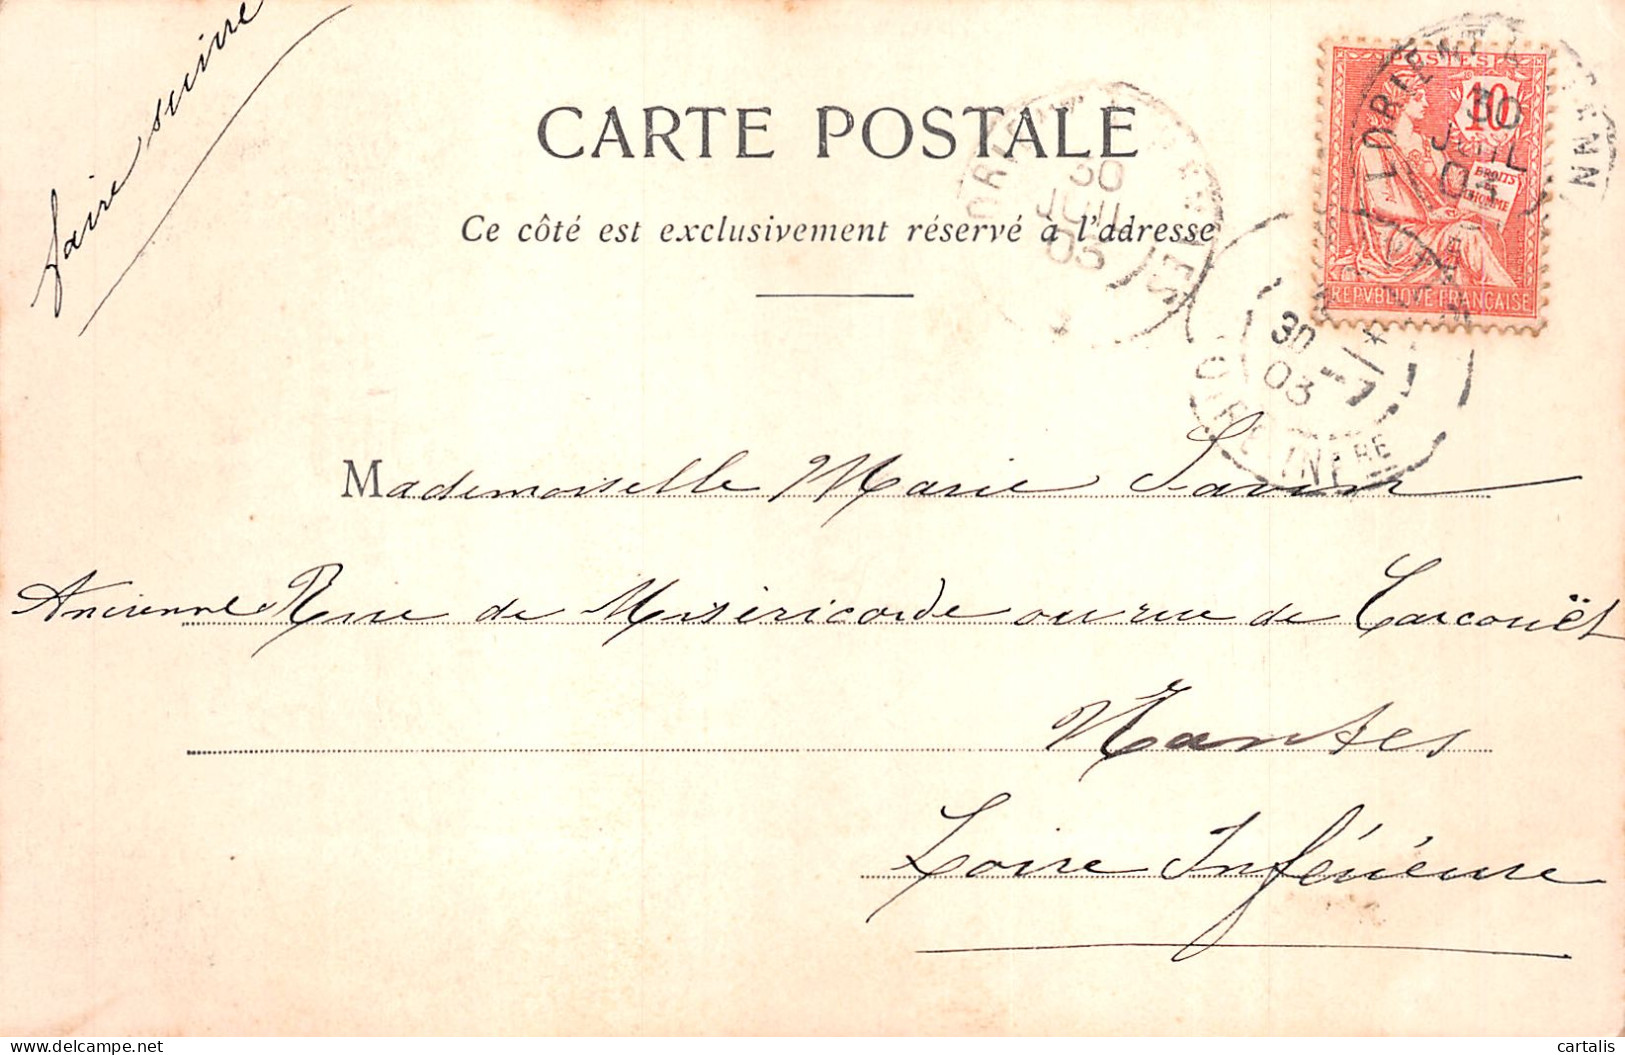 faire suivre
CARTE POSTALE
Ce côté est exclusivement réservé à l'adresse
POSTES
10
DROITS
DE L'HOMME
REPVBLIQVE FRANÇAISE
LORIENT
30
JUIL
03
30
JUIL
03
30 - 7
03
LOIRE INFRE
Mademoiselle Marie Savin
Ancienne Rue de Miséricorde ou rue de Carcouët
Nantes
Loire Inférieure
delcampe.net
cartalis